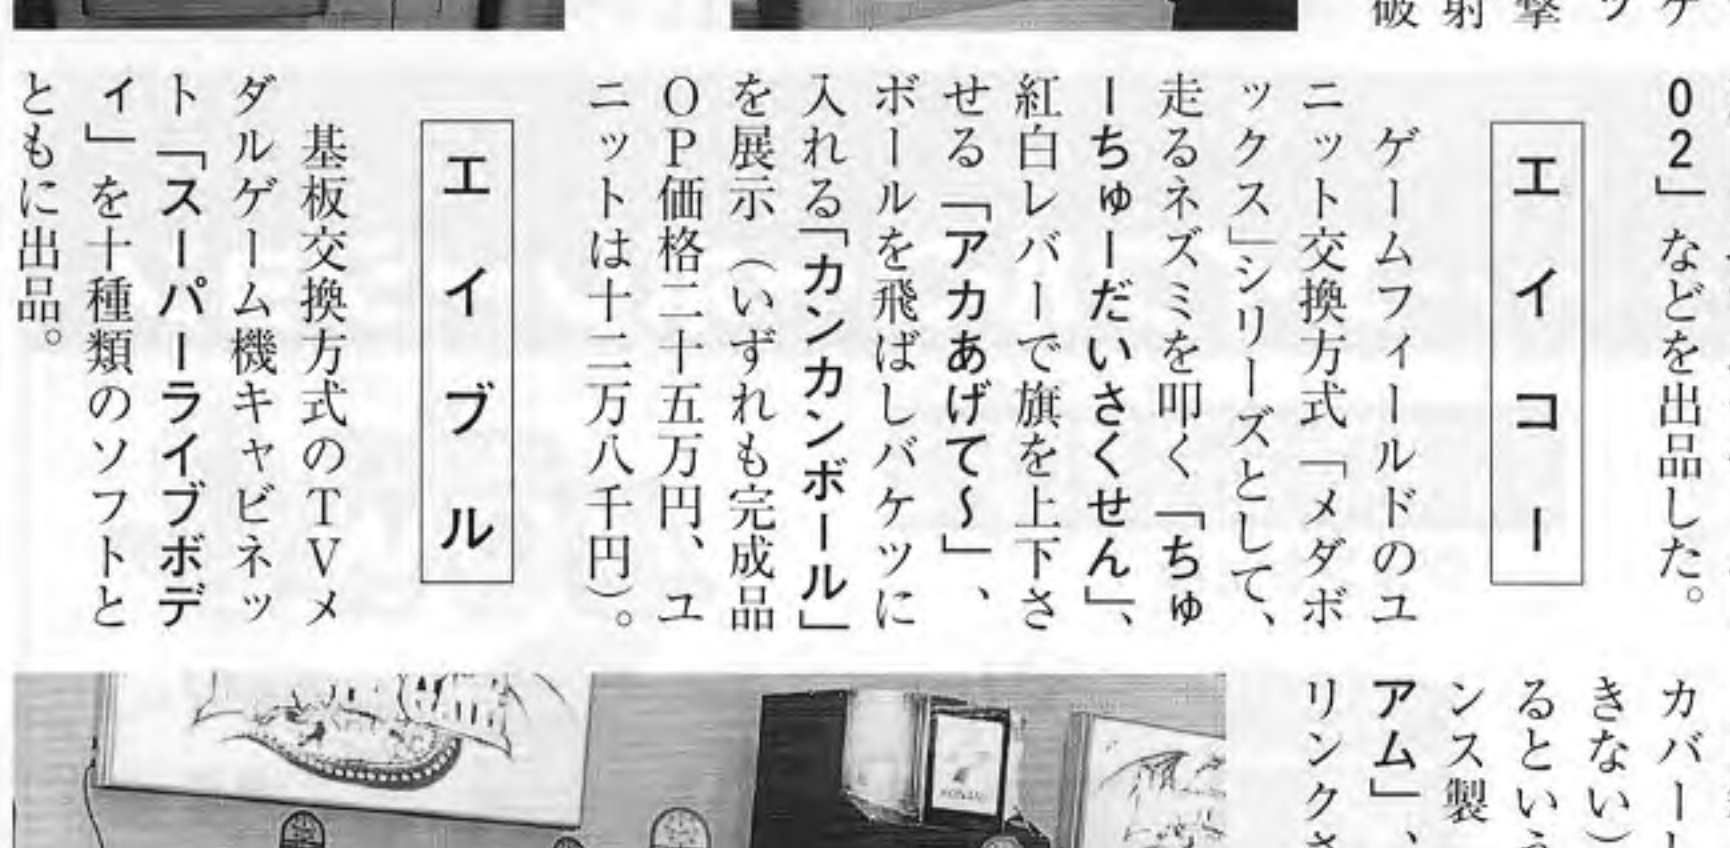 ケ
ッ
撃
射
破
02」などを出品した。
エイコー
ゲームフィールドのユ
ニット交換方式「メダボ
ックス」シリーズとして、
走るネズミを叩く「ちゅ
ーちゅーだいさくせん」、
紅白レバーで旗を上下さ
せる「アカあげて〜」、
ボールを飛ばしバケツに
入れる「カンカンボール」
を展示（いずれも完成品
OP価格二十五万円、ユ
ニットは十二万八千円）。
エイブル
基板交換方式のTVメ
ダルゲーム機キャビネッ
ト「スーパーライブボデ
ィ」を十種類のソフトと
ともに出品。
カバーし
きない）
るという
ンス製
アム」、
リンクさ
KONAMI